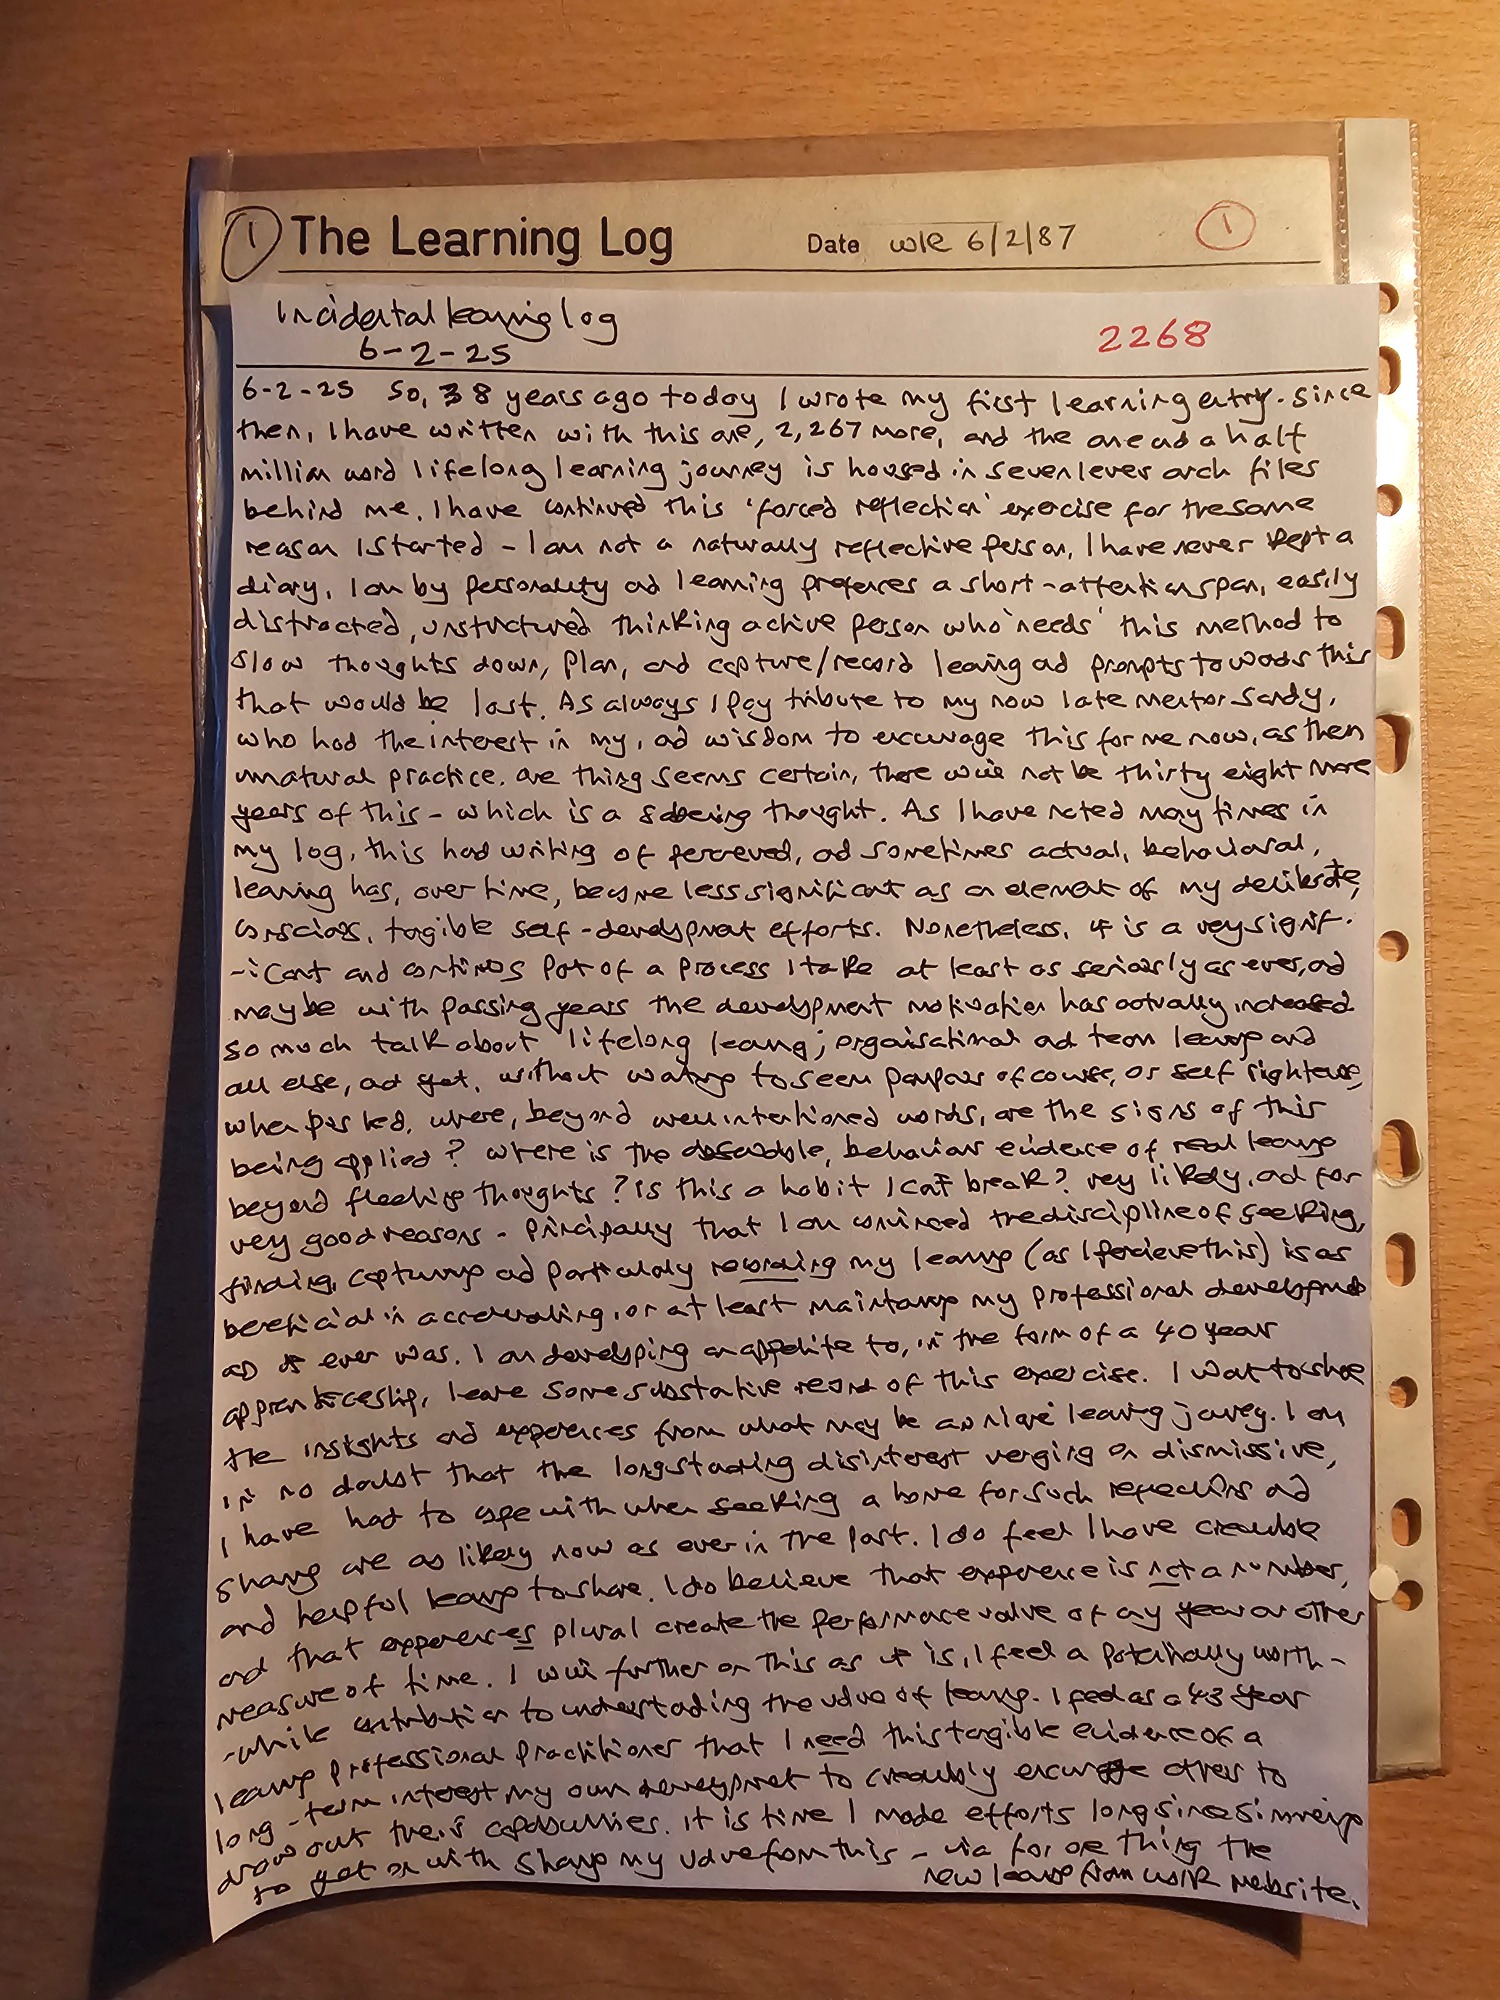 1 The Learning Log Date w/e 6/2/87 1
Incidental learning log
6-2-25 2268
6-2-25 So, 38 years ago today I wrote my first learning entry. Since
then, I have written with this one, 2,267 more, and the one and a half
million word lifelong learning journey is housed in seven lever arch files
behind me. I have continued this 'forced reflection' exercise for the same
reason I started - I am not a naturally reflective person, I have never kept a
diary, I am by personality and learning preferences a short-attention span, easily
distracted, unstructured thinking active person who 'needs' this method to
slow thoughts down, plan, and capture/record learning and prompts towards this
that would be lost. As always I pay tribute to my now late mentor Sandy,
who had the interest in my, and wisdom to encourage this for me now, as then
unnatural practice. One thing seems certain, there will not be thirty eight more
years of this - which is a sobering thought. As I have noted many times in
my log, this hand writing of perceived, and sometimes actual, behavioral,
learning has, over time, become less significant as an element of my deliberate,
conscious, tangible self-development efforts. Nonetheless, it is a very signif-
-icant and continuous part of a process I take at least as seriously as ever, and
maybe with passing years the development motivation has actually increased.
So much talk about lifelong learning; organisational and team learning and
all else, and yet, without wanting to seem pompous of course, or self righteous,
when pushed, where, beyond well intentioned words, are the signs of this
being applied? Where is the observable, behaviour evidence of real learning
beyond fleeting thoughts? Is this a habit I can't break? very likely, and for
very good reasons - Principally that I am convinced the discipline of seeking,
finding, capturing and particularly recording my learning (as I perceive this) is as
beneficial in accelerating, or at least maintaining my professional development
as it ever was. I am developing an appetite to, in the form of a 40 year
apprenticeship, leave some substantive record of this exercise. I want to share
the insights and experiences from what may be a unique learning journey. I am
in no doubt that the longstanding disinterest verging on dismissive,
I have had to cope with when seeking a home for such reflections and
sharing are as likely now as ever in the past. I do feel I have credible
and helpful learning to share. I do believe that experience is not a number,
and that experiences plural create the performance value of any year or other
measure of time. I will further on this as it is, I feel a potentially worth-
-while contribution to understanding the value of learning. I feel as a 43 year
learning professional practitioner that I need this tangible evidence of a
long-term interest my own development to credibly encourage others to
draw out their capabilities. It is time I made efforts long since simmering
to get on with sharing my value from this - via for one thing the
new learning from work website.